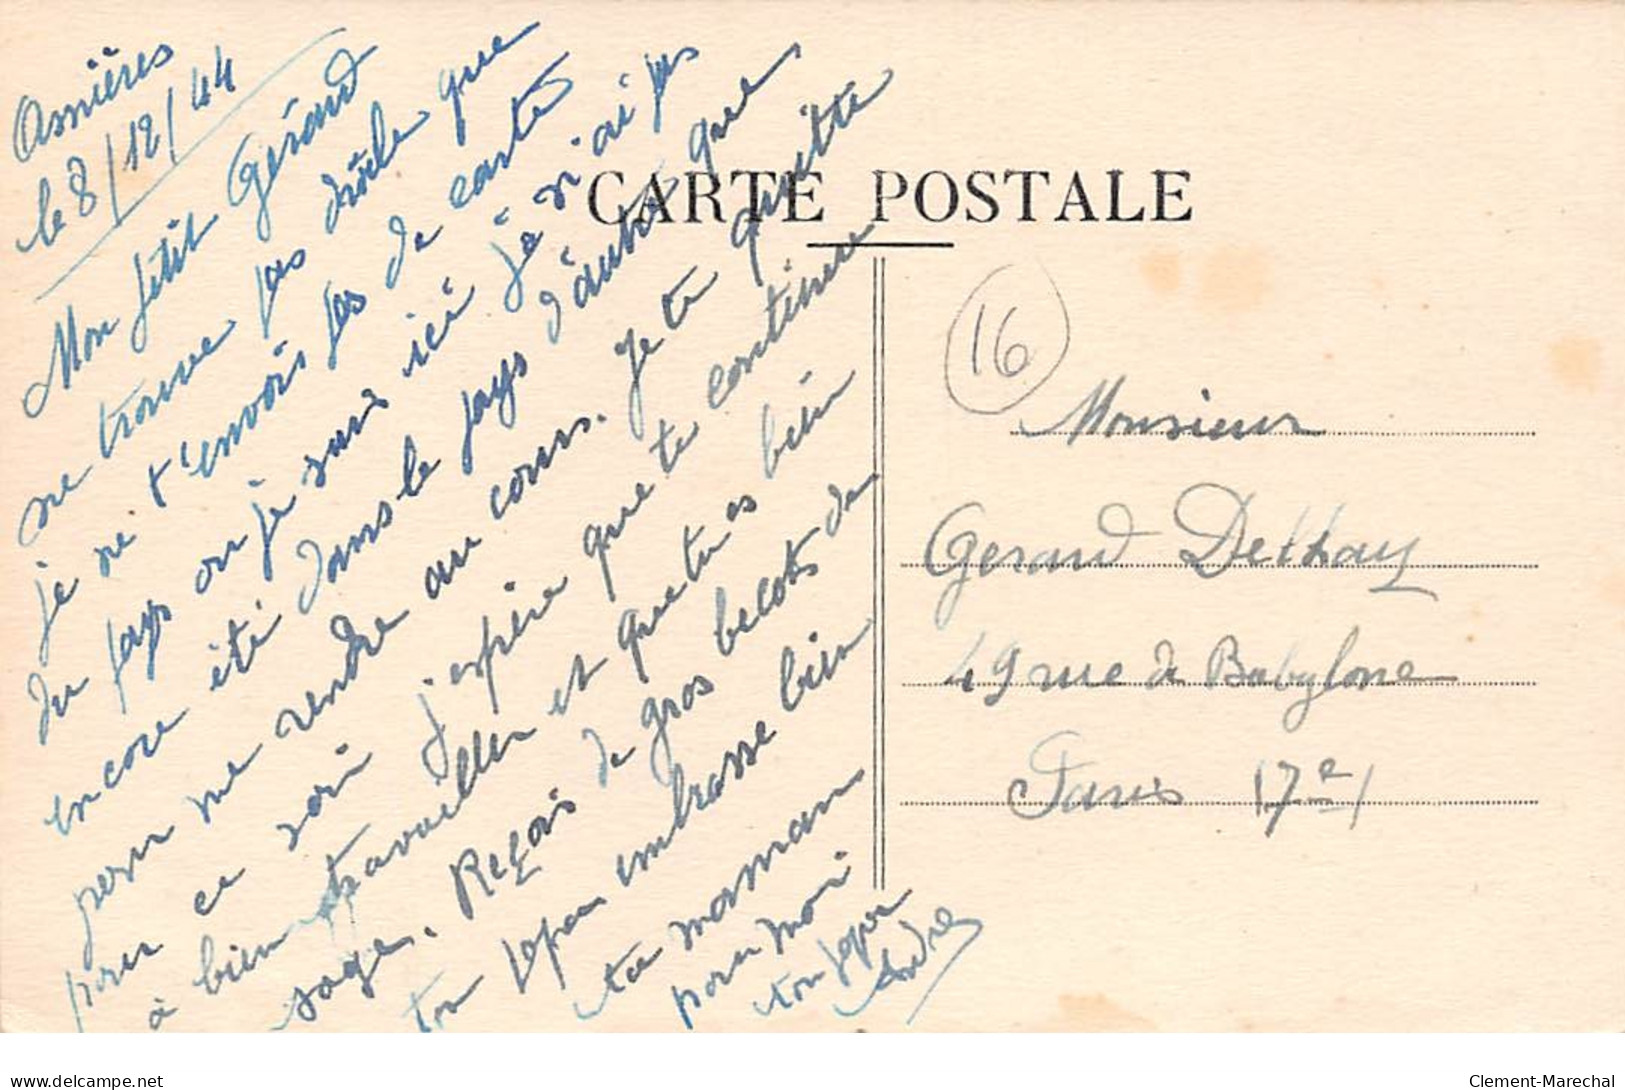 Asnières
le 8/12/44
Mon petit Gérard
ne trouve pas drôle que
je ne t'envois pas de carte
du pays ou je suis ici je n'ai pas
encore été dans le pays d'autre que
pour me rendre au cours. Je te quitte
pour ce soir j'espère que te continue
à bien travailler et que tu es bien
sage. Reçois de gros becots de
ton pepeu embrasse bien
ta maman
pour moi
ton peper
André
CARTE POSTALE
16
Monsieur
Gerard Delhay
49 rue de Babylone
Paris 17e
delcampe.net
Clement-Marechal